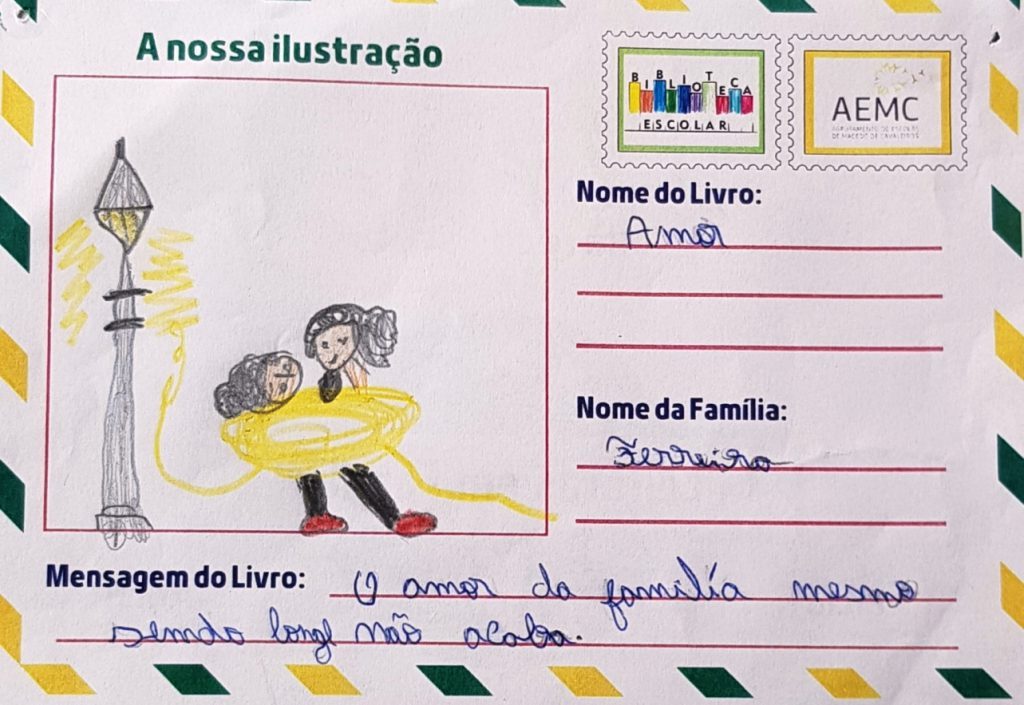 A nossa ilustração
BIBLIOTECA
ESCOLAR
AEMC
AGRUPAMENTO DE ESCOLAS
DE MACEDO DE CAVALEIROS
Nome do Livro:
Amor
Nome da Família:
Ferreira
Mensagem do Livro: O amor da família mesmo
sendo longe não acaba.